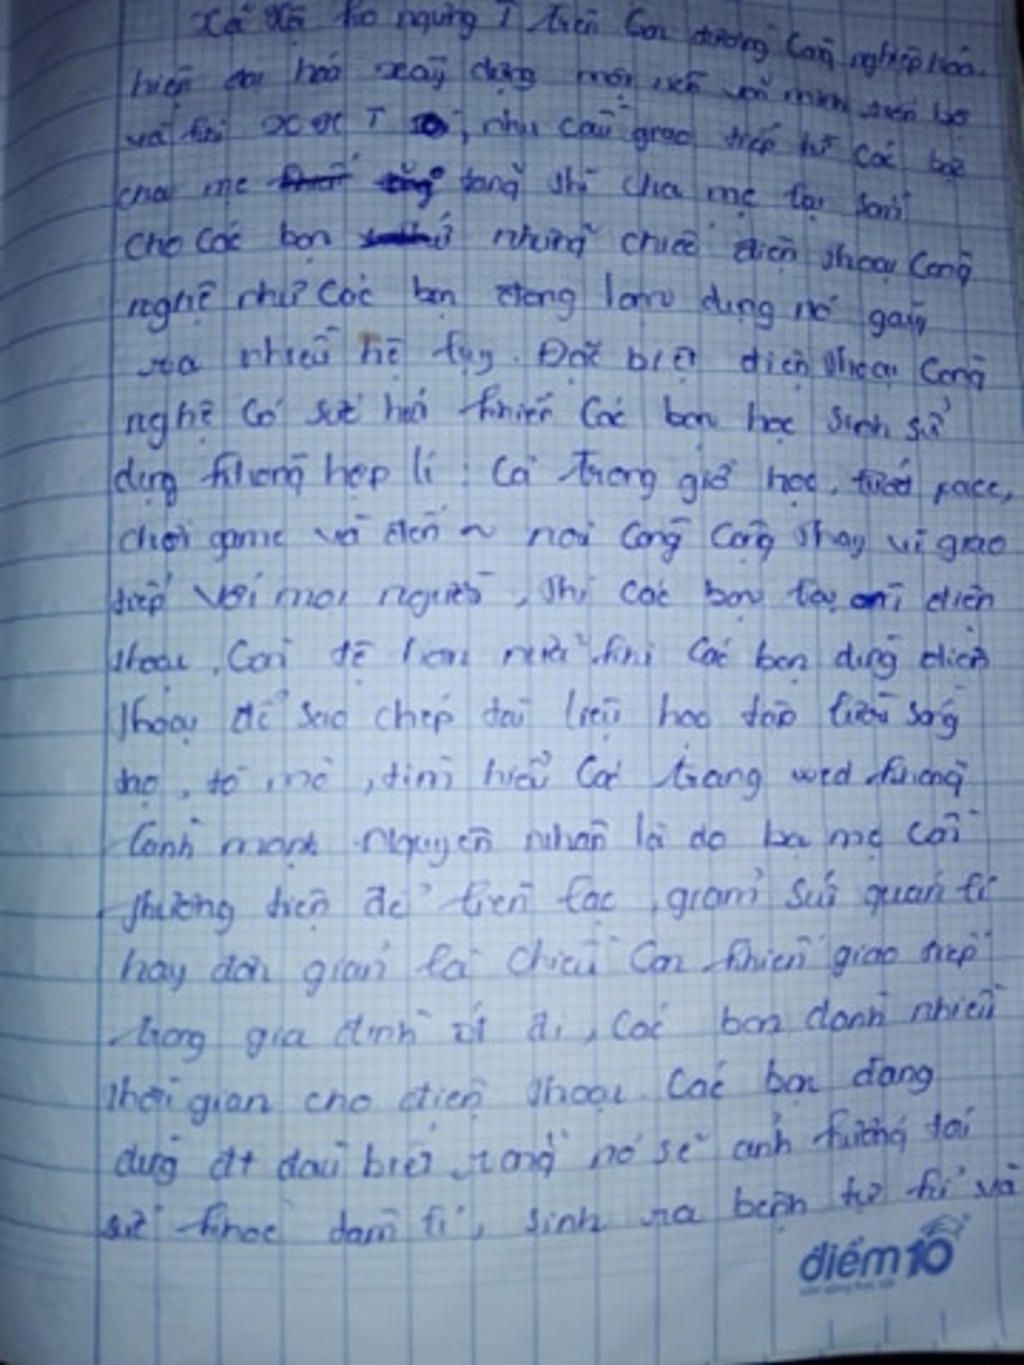 Xã hội ko ngừng T trên con đường công nghiệp hóa
hiện đại hoá xây dựng mới, nền văn minh tiến bộ
và khi XH T, nhu cầu giao tiếp từ các bậc
cha mẹ tăng thì cha mẹ lại sắm
cho các bạn những chiếc điện thoại công
nghệ như các bạn đang lạm dụng nó gây
ra nhiều hệ lụy. Đặc biệt điện thoại công
nghệ có sức hút khiến các bạn học sinh sử
dụng không hợp lí: Cả trong giờ học, face,
chơi game và đến ~ nơi công cộng thay vì giao
tiếp với mọi người, thì các bạn lại điện
thoại. Còn tệ hơn nữa khi các bạn dùng điện
thoại để sao chép tài liệu học tập
tò mò, tìm hiểu các trang wed không
lành mạnh. Nguyên nhân là do ba mẹ coi
phương tiện để liên lạc, giám sát quản lí
hay đơn giản là chiều con khiến giao tiếp
trong gia đình ít đi, các bạn dành nhiều
thời gian cho điện thoại. Các bạn đang
dùng đt đâu biết rằng nó sẽ ảnh hưởng tới
sức khoẻ tâm lí, sinh ra bệnh tự kỉ và
điểm 10